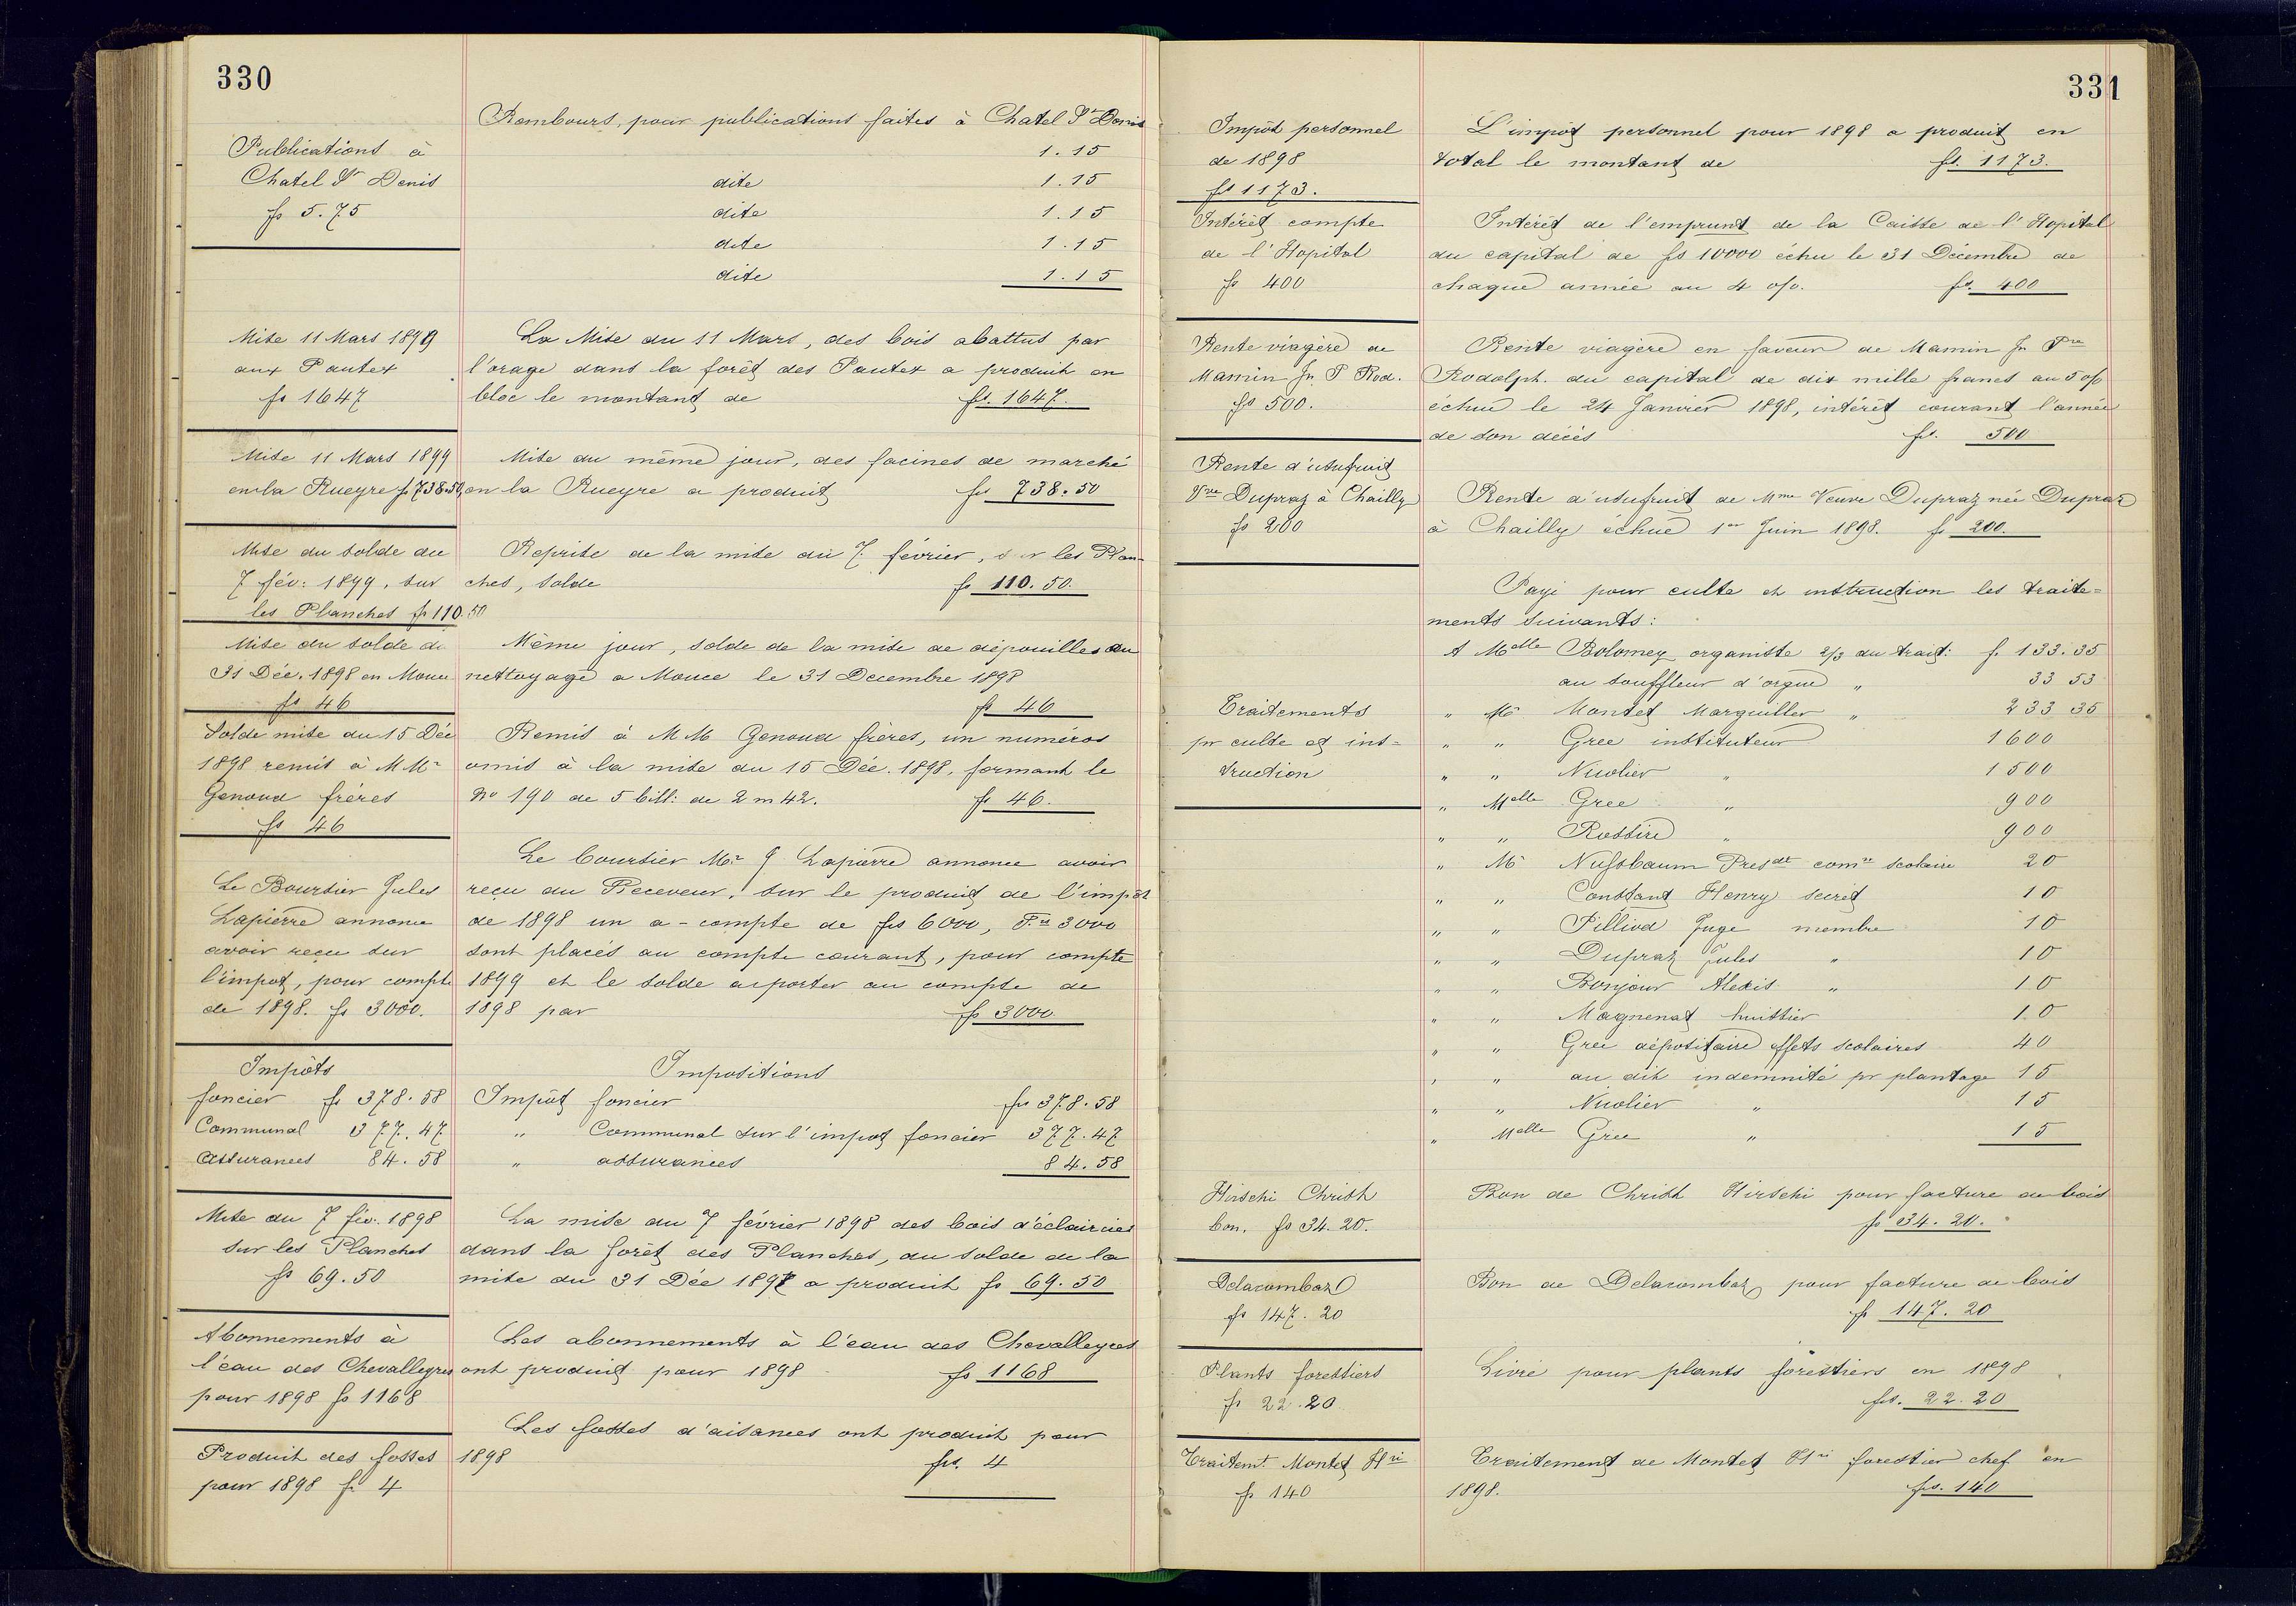 330
Rembours. pour publications faites à Chatel St Denis
Publications à
1.15
Chatel St Denis
dite 1.15
fs 5.75
dite 1.15
dite 1.15
dite 1.15
Mise 11 Mars 1899
aux Pautex
fs 1647
La Mise du 11 Mars, des bois abattus par
l'orage dans la forêt des Pautex a produit en
bloc le montant de frs. 1647.
Mise 11 Mars 1899
en la Rueyre fs 738.50
Mise du même jour, des facines de marché
en la Rueyre a produit frs 738.50
Mise du solde du
7 fév: 1899, sur
les Planches fs 110.50
Reprise de la mise du 7 février, sur les Plan-
ches, solde fs 110.50.
Mise du solde du
31 Déc. 1898 en Mouce
fs 46
Même jour, solde de la mise de dépouilles du
nettoyage a Mouce le 31 Decembre 1898
fs 46
Solde mise du 15 Déc
1898 remis à M Mrs
Genoud frères
fs 46
Remis à M M Genoud frères, un numéros
omis à la mise du 15 Déc. 1898, formant le
No 190 de 5 bill: de 2 m 42. fs 46.
Le Boursier Jules
Lapierre annonce
avoir reçu sur
l'impot, pour compte
de 1898. fs 3000.
Le boursier Mr J Lapierre annonce avoir
reçu du Receveur, sur le produit de l'impôt
de 1898 un a-compte de frs 6000, Frs 3000
sont placés au compte courant, pour compte
1899 et le solde a porter au compte de
1898 par fs 3000.
Impôts
foncier fs 378.58
Communal 377.47
Assurances 84.58
Impositions
Impôt foncier frs 378.58
" Communal sur l'impot foncier 377.47
" assurances 84.58
Mise du 7 fév. 1898
sur les Planches
fs 69.50
La mise du 7 février 1898 des bois d'éclaircies
dans la forêt des Planches, du solde de la
mise du 31 Déc 1897 a produit fs 69.50
Abonnements à
l'eau des Chevalleyres
pour 1898 fs 1168
Les abonnements à l'eau des Chevalleyres
ont produit pour 1898 fs 1168
Produit des fosses
pour 1898 fs 4
Les fosses d'aisances ont produit pour
1898 frs. 4
331
Impôt personnel
de 1898
frs 1173.
L'impôt personnel pour 1898 a produit en
total le montant de fs. 1173.
Intérêt compte
de l'Hopital
fs 400
Intérêt de l'emprunt de la Caisse de l'Hopital
du capital de frs 10000 échu le 31 Décembre de
chaque année au 4 o/o. fs. 400
Rente viagère de
Mamin Jn P Rod.
frs 500.
Rente viagère en faveur de Mamin Jn Pre
Rodolph. du capital de dix mille francs au 5 o/o
échue le 24 Janvier 1898, intérêt courant l'année
de son décès frs. 500
Rente d'usufruit
Vve Dupraz à Chailly
fs 200
Rente d'usufruit de Mme Veuve Dupraz née Dupraz
à Chailly échue 1er Juin 1898. fs 200.
Traitements
pr culte et ins=
truction
Payé pour culte et instruction les traite=
ments suivants:
A Melle Bolomey organiste 2/3 du trait: f. 133.35
au souffleur d'orgue " 33 53
" Mr Montet Marguiller " 233 35
" " Gree instituteur 1600
" " Nicolier " 1500
" Melle Gree " 900
" " Rossire " 900
" Mr Nussbaum Presdt comon scolaire 20
" " Constant Henry secret 10
" " Pilliod Juge membre 10
" " Dupraz Jules " 10
" " Bonjour Alexis " 10
" " Magnenat huissier 10
" " Gree dépositaire effets scolaires 40
" " au dit indemnité pr plantage 15
" " Nicolier " 15
" Melle Gree " 15
Hirschi Christ
bon. fs 34.20.
Bon de Christ Hirschi pour facture de bois
fs 34.20.
Delacombaz
fs 147.20
Bon de Delacombaz pour facture de bois
fs 147.20
Plants forestiers
fs 22.20
Livré pour plants forestiers en 1898
frs. 22.20
Traitemt Montet Hri
fs 140
Traitement de Montet Hri forestier chef en
1898. frs. 140